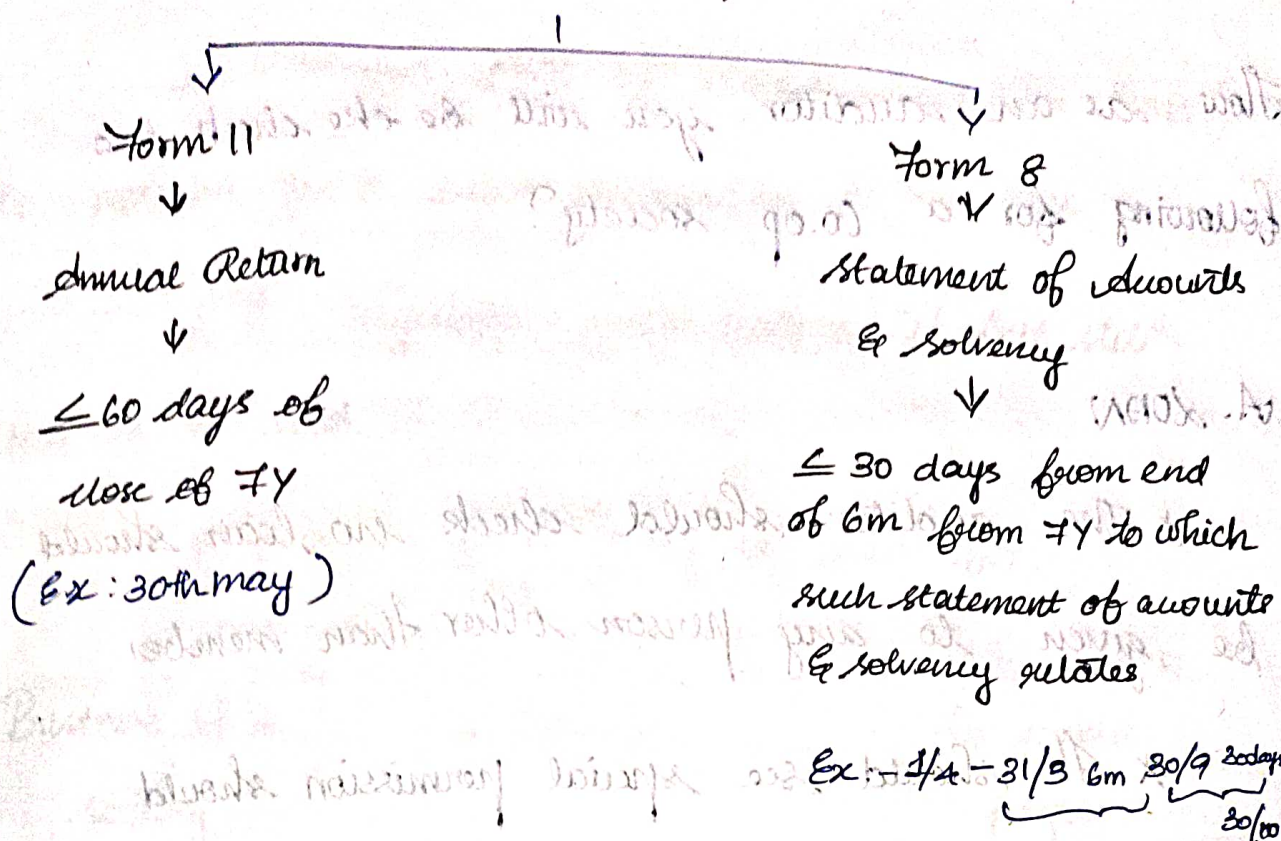 Form 11
Annual Return
≤ 60 days of
close of FY
(Ex: 30th may)
Form 8
Statement of Accounts
& solvency
≤ 30 days from end
of 6m from FY to which
such statement of accounts
& solvency relates
Ex:- 1/4 - 31/3 6m 30/9 30days